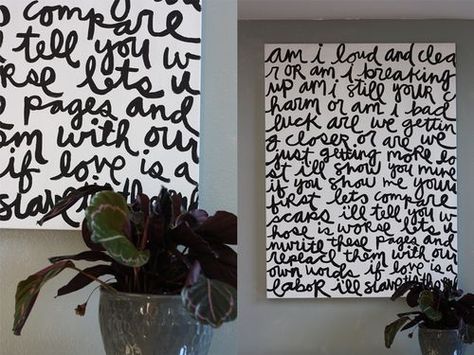 compare
ll tell you w
rse lets u
pages and
m with our
if love is a
slave
am i loud and clea
r or am i breaking
up am i still your
harm or am i bad
luck are we gettin
g closer or are we
just getting more lo
st i'll show you mine
if you show me your
first lets compare
scars i'll tell you w
hose is worse lets u
nwrite these pages and
replace them with our
own words if love is a
labor i'll slave